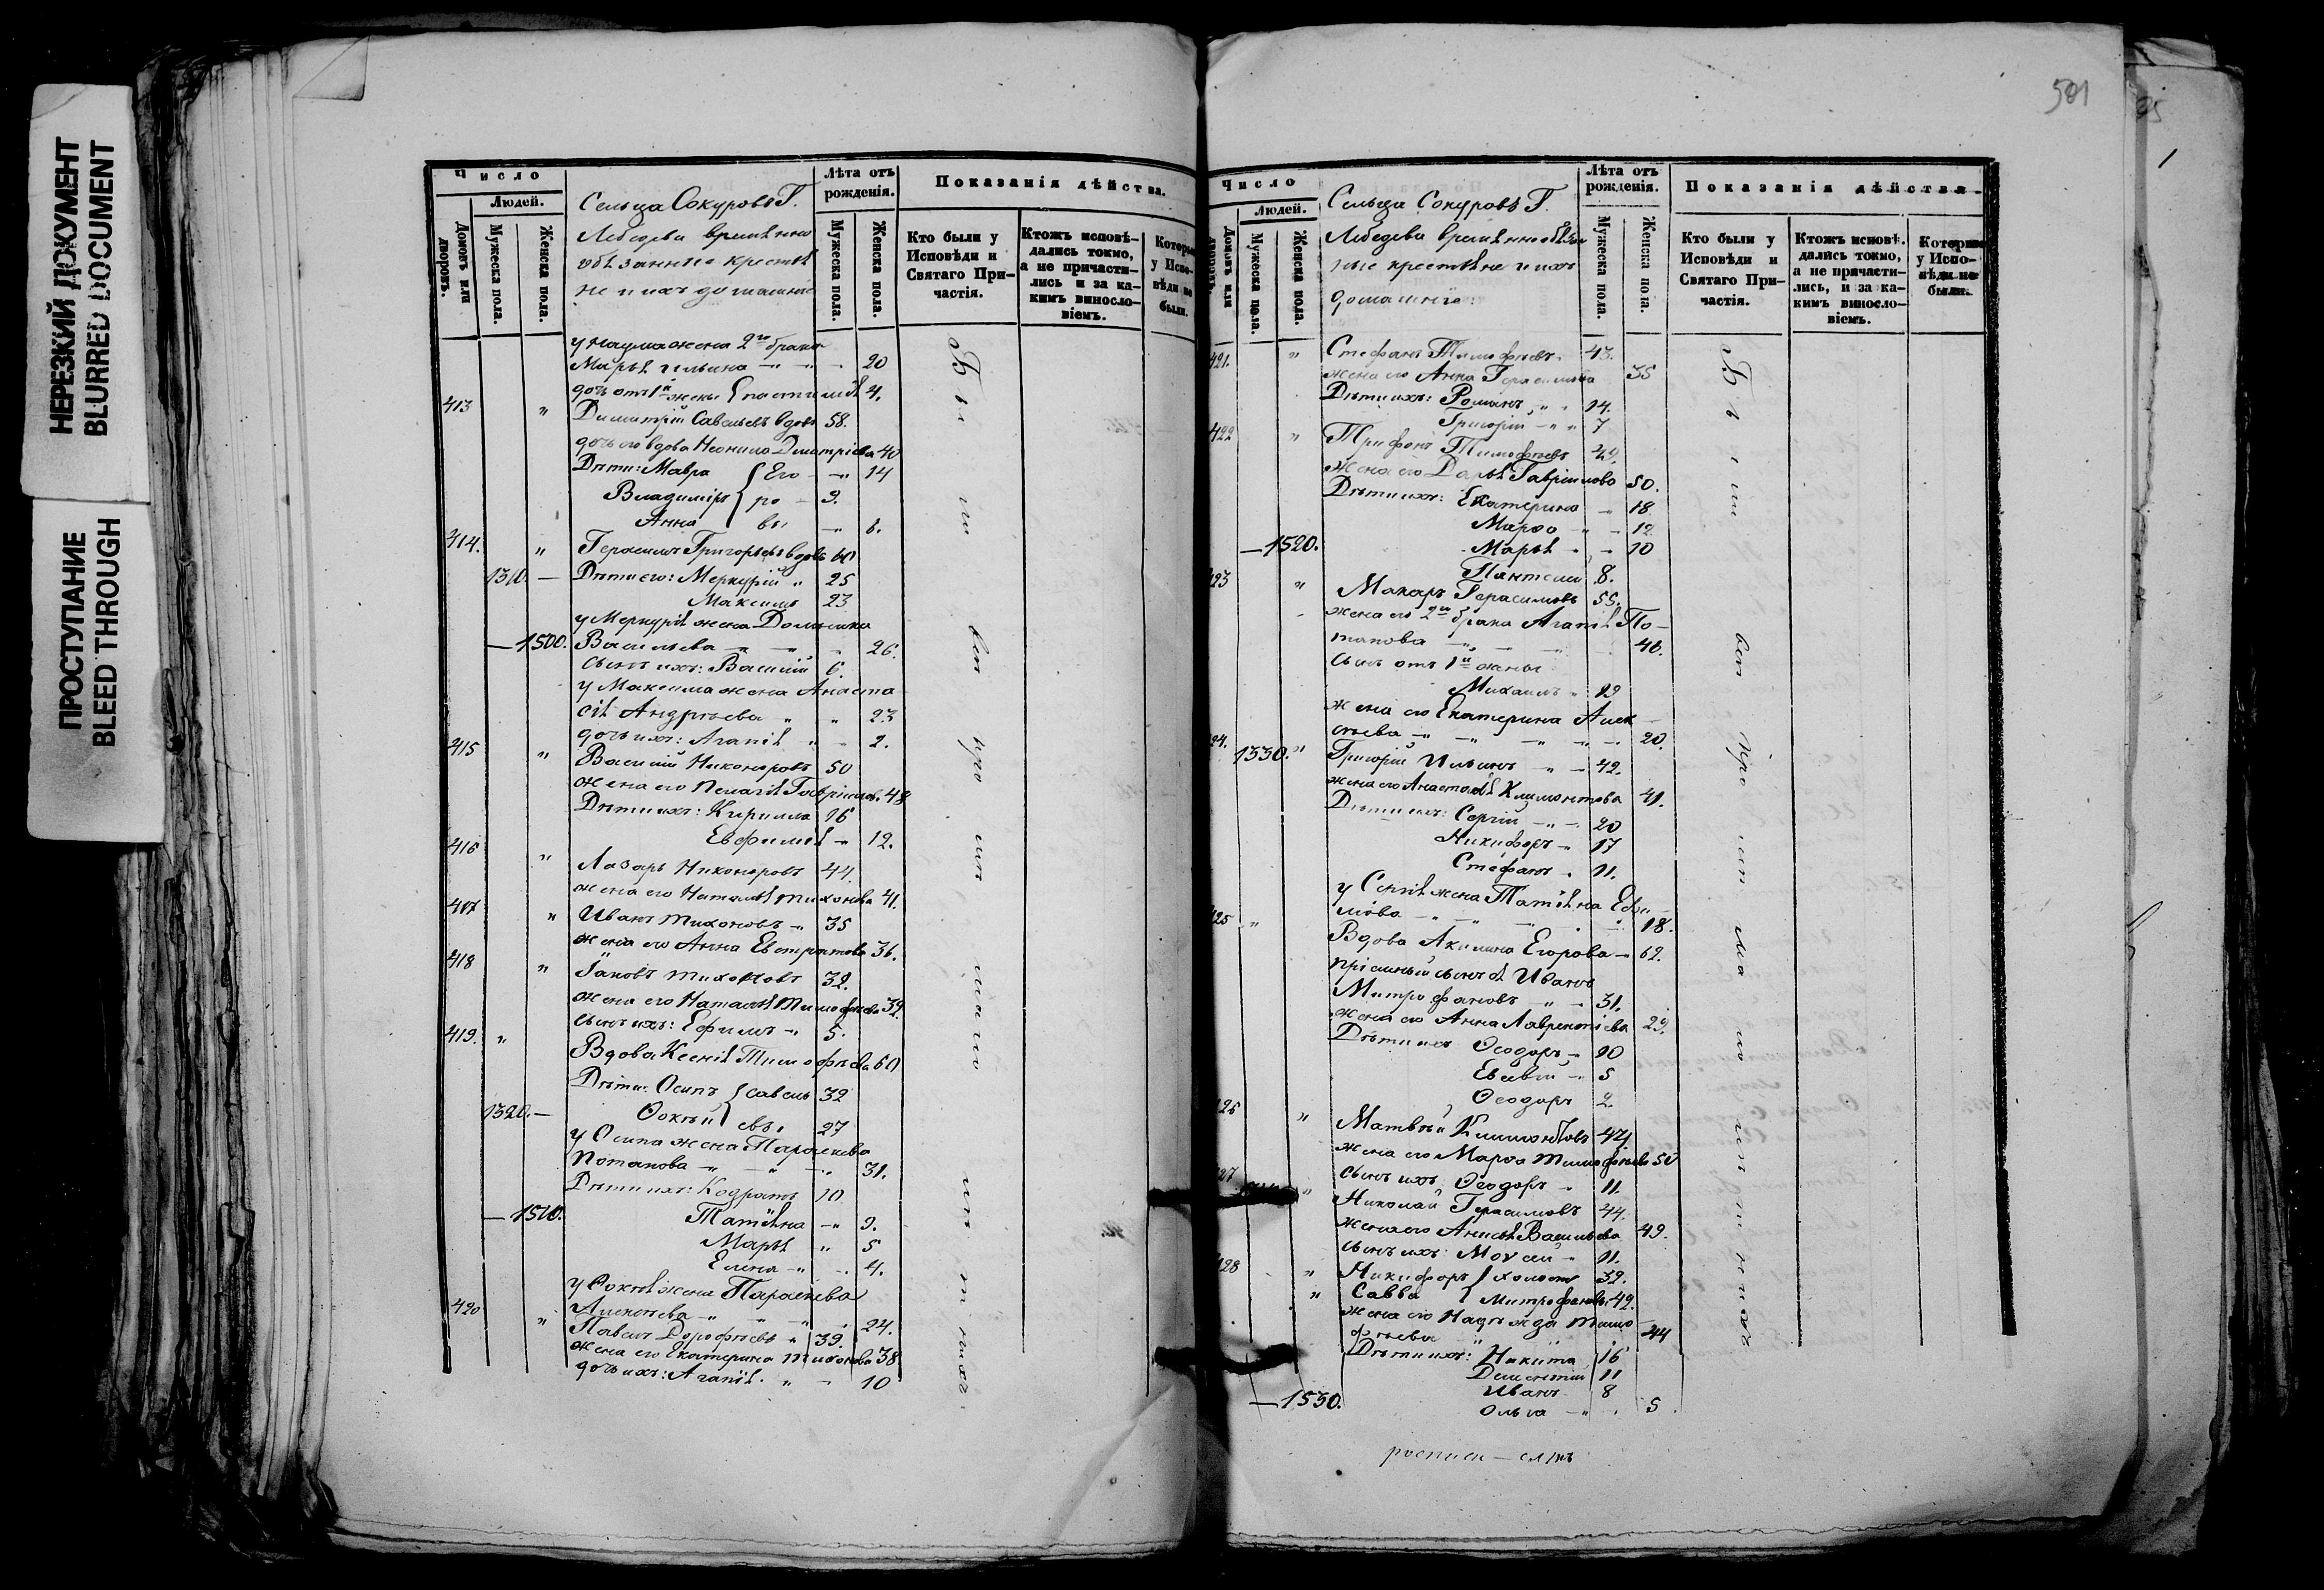 НЕРЕЗКИЙ ДОКУМЕНТ
BLURRED DOCUMENT
ПРОСТУПАНИЕ
BLEED THROUGH
Число
Людей.
Домовъ или дворовъ.
Мужеска пола.
Женска пола.
Сельца Сокуровъ Г.
Лебедева временно
обязанные крестья
не и ихъ домашніе
Лѣта отъ рожденія.
Мужеска пола.
Женска пола.
Показанія дѣйства.
Кто были у Исповѣди и Святаго Причастія.
Ктожъ исповѣдались токмо, а не причастились и за какимъ винословіемъ.
Которые у Исповѣди не были.
у Наума жена 2го брака
Марья Ильина 20
дочь отъ 1й жены 4.
413 Димитрій Савельевъ вдовъ 58.
дочь его вдова Неонила Димитріева 40
Дѣти: Мавра Его 14
Владиміръ ро 9.
Анна вы 6.
414. Герасимъ Григорьевъ вдовъ 60
1310. Дѣти его: Меркурій 25
Максимъ 23
у Меркурія жена Домникія
1500. Васильева 26.
сынъ ихъ: Василій 6.
у Максима жена Анаста
сія Андреева 23
дочь ихъ: Агапія 2.
415 Василій Никоноровъ 50
жена его Пелагія Гаврилов. 48
Дѣти ихъ: Кирилла 16
Евфимія 12.
416 Лазарь Никоноровъ 44.
жена его Наталья Тихонова 41.
417 Иванъ Тихоновъ 35
жена его Анна Евстратова 36.
418 Іаковъ Тихоновъ 32.
жена его Наталья Тимофеева 32.
сынъ ихъ: Ефимъ 5.
419. Вдова Ксенія Тимофѣева 60
Дѣти: Осипъ савель 32
1320. Фокѣй евы 27
у Осипа жена Параскева
Потапова 31.
Дѣти ихъ: Кодратъ 10
1510. Татіяна 9.
Марья 5
Елена 4.
у Фокея жена Параскева
Алексѣева 24.
420 Павелъ Дорофѣевъ 39.
жена его Екатерина Тихонова 38
дочь ихъ: Агапія 10
Были
501
Число
Людей.
Домовъ или дворовъ.
Мужеска пола.
Женска пола.
Сельца Сокуровъ Г.
Лебедева временнообязан
ные крестьяне и ихъ
домашніе:
Лѣта отъ рожденія.
Мужеска пола.
Женска пола.
Показанія дѣйства.
Кто были у Исповѣди и Святаго Причастія.
Ктожъ исповѣдались токмо, а не причастились, и за какимъ винословіемъ.
Которые у Исповѣди не были.
421. Стефанъ Тимофѣевъ 43.
жена его Анна Герасимова 35
Дѣти ихъ: Романъ 14.
Григорій 7
422 Трифонъ Тимофѣевъ 49.
Жена его Дарья Гаврилова 50.
Дѣти ихъ: Екатерина 18.
Марфа 12
1520. Марья 10
Пантелей 8.
423 Макаръ Герасимовъ 55.
жена его 2го брака Агапія По-
тапова 46.
сынъ отъ 1й жены
Михаилъ 19
жена его Екатерина Алек
сѣева 20.
424. 1330. Григорій Ильинъ 42.
жена его Анастасія Климонтова 41.
Дѣти ихъ: Сергій 20
Никифоръ 17
Стефанъ 11.
у Сергія жена Татіяна Ефи-
мова 18.
425 Вдова Акилина Егорова 62.
пріемный сынъ ея Иванъ
Митрофановъ 31.
жена его Анна Лаврентіева 29.
Дѣти ихъ Ѳеодоръ 10
Евсевій 5
Ѳеодоръ 2.
426 Матвѣй Климонтовъ 47.
жена его Марфа Тимофѣева 50
427 сынъ ихъ Ѳеодоръ 11.
Николай Герасимовъ 44.
жена его Анисья Васильева 49.
сынъ ихъ: Моѵсей 11.
428 Никифоръ холостъ 32.
Савва Митрофановы 42.
жена его Надежда Тимо
фѣева 44
Дѣти ихъ: Никита 16
Дементій 11
Иванъ 8
1530. Ольга 5
Были